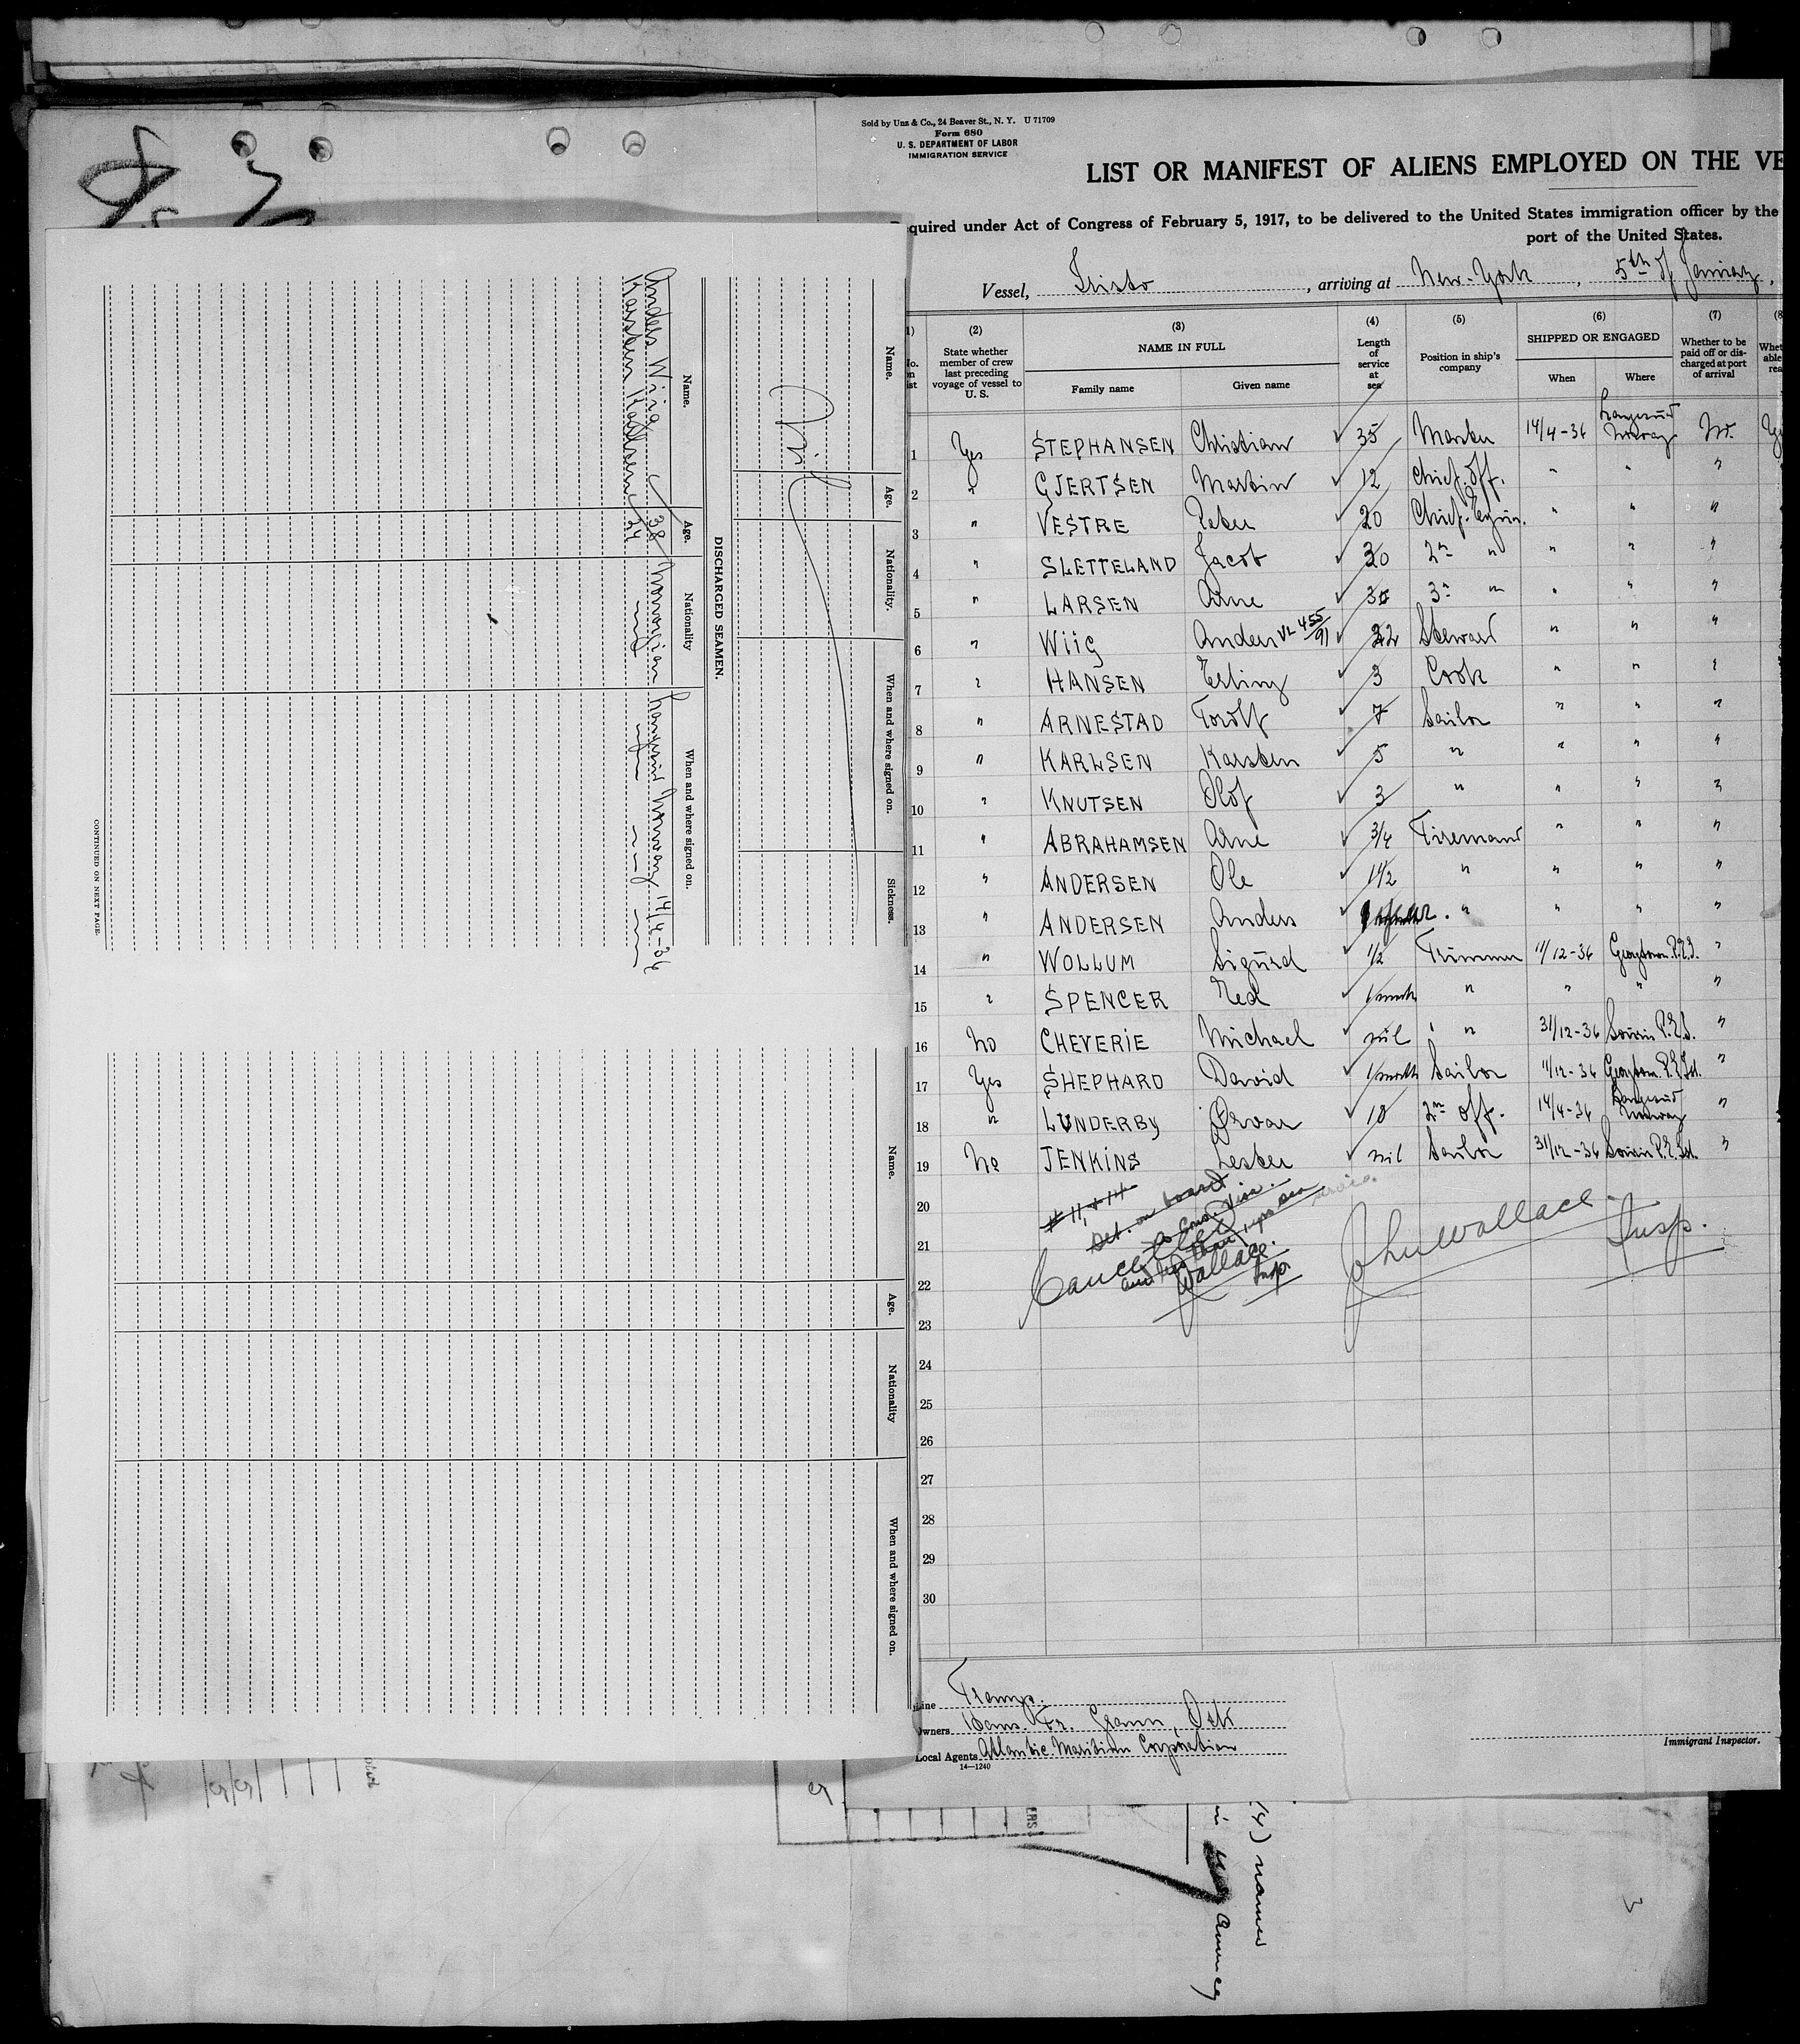 Sold by Unz & Co., 24 Beaver St., N. Y. U 71709
Form 680
U. S. DEPARTMENT OF LABOR
IMMIGRATION SERVICE
LIST OR MANIFEST OF ALIENS EMPLOYED ON THE VE
quired under Act of Congress of February 5, 1917, to be delivered to the United States immigration officer by the
port of the United States.
Vessel, Tristo, arriving at New-York, 5th of January,
(2) (3) (4) (5) (6) (7)
State whether member of crew last preceding voyage of vessel to U. S. NAME IN FULL Length of service at sea Position in ship's company SHIPPED OR ENGAGED Whether to be paid off or discharged at port of arrival
Family name Given name When Where
1 Yes STEPHANSEN Christian ✓ 35 Master 14/4-36 Langesund Norway No.
2 " GJERTSEN Martin ✓ 12 Chief. Off. " " "
3 " VESTRE Peter ✓ 20 Chief. Engin. " " "
4 " SLETTELAND Jacob ✓ 30 2n " " " "
5 " LARSEN Arne ✓ 3 " " " "
6 " WIIG Anders ✓ 22 Steward " " "
7 " HANSEN Erling ✓ 3 Cook " " "
8 " ARNESTAD Torolf ✓ 7 Sailor " " "
9 " KARLSEN Karsten ✓ 5 " " " "
10 " KNUTSEN Olof ✓ 3 " " " "
11 " ABRAHAMSEN Arne ✓ 3/4 Firemand " " "
12 " ANDERSEN Ole 1 1/2 " " " "
13 " ANDERSEN Anders ✓ " " " "
14 " WOLLUM Sigurd ✓ 1/2 Trimmer 11/12-36 Georgtown. P.E.I. "
15 " SPENCER ✓ 1/month " " " "
16 No CHEVERIE Michael ✓ nil " 31/12-36 Souris P.E.I. "
17 Yes SHEPHARD David ✓ 1/month Sailor 11/12-36 Georgtown. P.E.Isl. "
18 " LUNDERBY Ørvar ✓ 10 2n Off. 14/4-36 Langesund Norway "
19 No JENKINS Lester ✓ nil Sailor 31/12-36 Souris P.E.Isl. "
20
# 11, & 14
Det. on board
no Cons. Visa.
and less than 1 yrs sea service.
21
Cancelled
Wallace.
Insp.
John Wallace
Insp.
22
23
24
25
26
27
28
29
30
Line Tramp.
Owners Hans. Fr. Grann, Oslo
Local Agents Atlantic Maritime Corporation
14—1240
Immigrant Inspector.
Name. Age. Nationality. When and where signed on. Sickness.
Nil
DISCHARGED SEAMEN.
Name. Age. Nationality When and where signed on.
Anders Wiig 38 Norvegian Langesund Norway 14/4-36
Karsten Karlsen 24
CONTINUED ON NEXT PAGE.
Name. Age. Nationality When and where signed on.
ERS
named